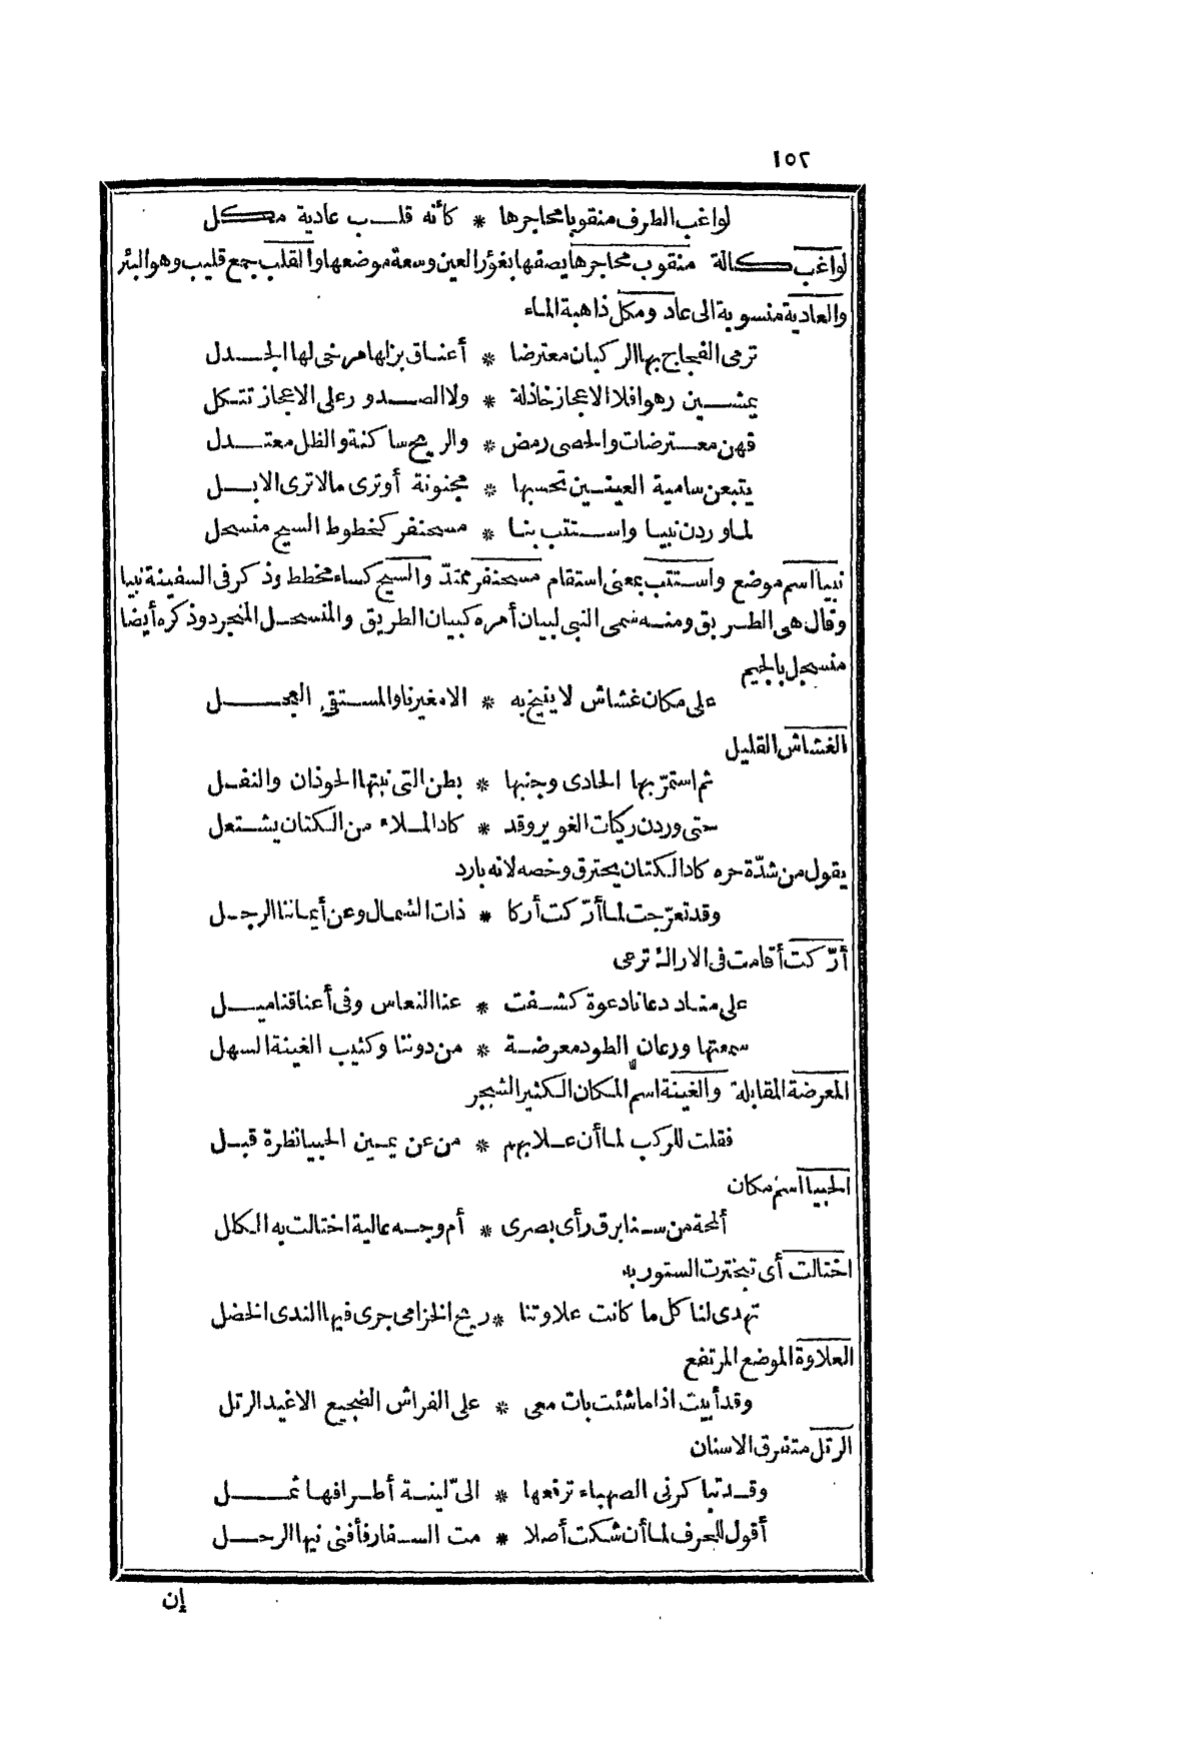 ١٥٢
لواغب الطرف منقوبا محاجرها * كأنه قلب عادية مكل
لواغب كالة منقوب محاجرها يصفها بغؤر العين وسعة موضعها والقلب جمع قليب وهو البئر
والعادية منسوبة الى عاد ومكل ذاهبة الماء
ترمى الفجاج بها الركبان معترضا * أعناق بزلها مرخى لها الجدل
يمشين رهوا فلا الاعجاز خاذلة * ولا الصدور على الاعجاز تتكل
فهن معترضات والحصى رمض * والريح ساكنة والظل معتدل
يتبعن سامية العينين تحسبها * مجنونة أو ترى مالا ترى الابل
لما وردن نبيا واستتب بنا * مسحنفر كخطوط السيح منسحل
نبيا اسم موضع واستتب بمعنى استقام مسحنفر ممتدّ والسيح كساء مخطط وذكر فى السفينة نبيا
وقال هى الطريق ومنه سمى النبى لبيان أمره كبيان الطريق والمنسحل المنجرد وذكره أيضا
منسجل بالجيم
على مكان غشاش لا ينيخ به * الا مغيرنا والمستقى العجل
الغشاش القليل
ثم استمرّ بها الحادى وجنبها * بطن التى نبتها الحوذان والنفل
حتى وردن ركيات الغوير وقد * كاد الملاء من الكتان يشتعل
يقول من شدّة حره كاد الكتان يحترق وخصه لانه بارد
وقد تعرّجت لما أرّكت أركا * ذات الشمال وعن أيماننا الرجل
أرّكت أقامت فى الاراك ترعى
على مناد دعانا دعوة كشفت * عنا النعاس وفى أعناقنا ميل
سمعتها ورعان الطود معرضة * من دوننا وكثيب الغينة السهل
المعرضة المقابلة والغينة اسم المكان الكثير الشجر
فقلت للركب لما أن علا بهم * من عن يمين الحبيا نظرة قبل
الحبيا اسم مكان
ألمحة من سنا برق رأى بصرى * أم وجه عالية اختالت به الكلل
اختالت أى تبخترت الستور به
تهدى لنا كل ما كانت علاوتنا * ريح الخزامى جرى فيها الندى الخضل
العلاوة الموضع المرتفع
وقد أبيت اذا ما شئت بات معى * على الفراش الضجيع الاغيد الرتل
الرتل متفرق الاسنان
وقد تباكرنى الصهباء ترفعها * الىّ لينة أطرافها ثمل
أقول للحرف لما أن شكت أصلا * مت السفار فأفنى نيها الرحل
إن